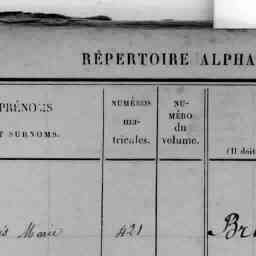 RÉPERTOIRE ALPHA
PRÉNOMS
T SURNOMS.
NUMÉROS
ma-
tricules.
NU-
MÉRO
du
volume.
(Il doit
is Marie
421
Br